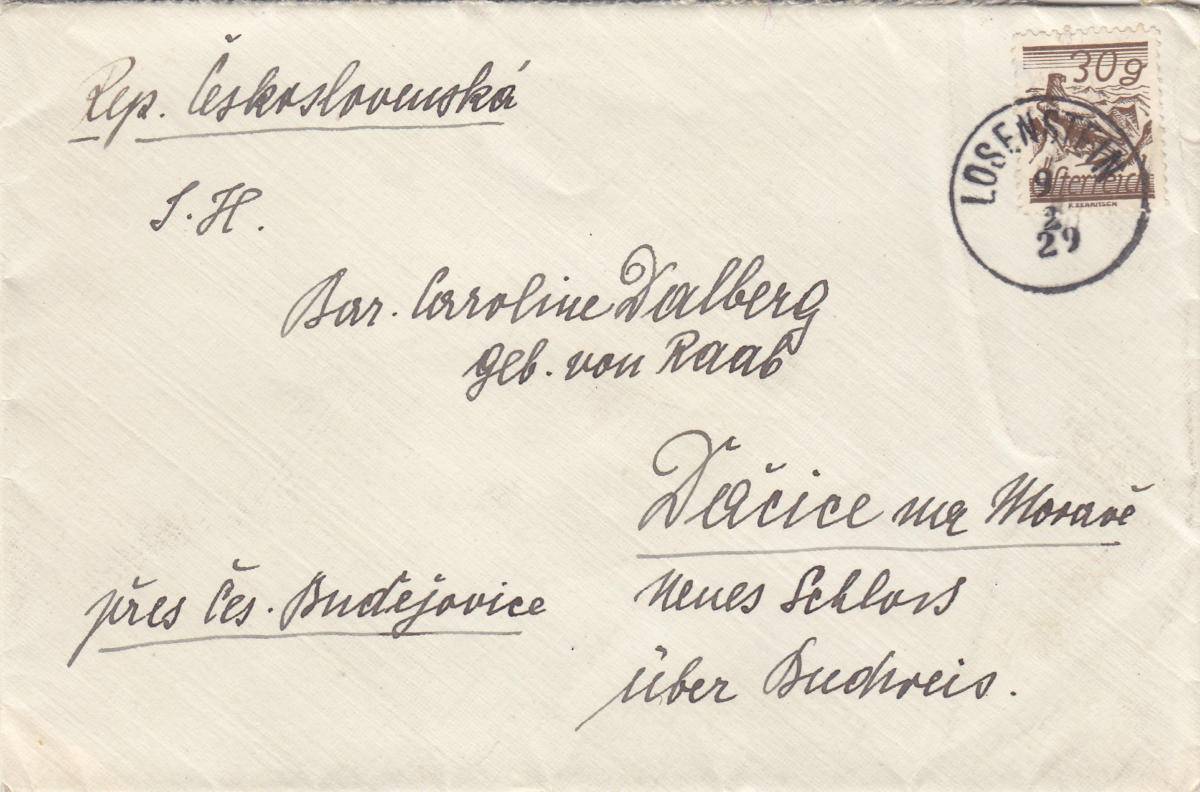 Rep. Československá
30g
LOSENSTEIN
9
2
29
Österreich
S. H.
Bar. Caroline Dalberg
geb. von Raab
Dačice na Moravě
neues Schloss
přes Čes. Buďejovice
über Budweis.